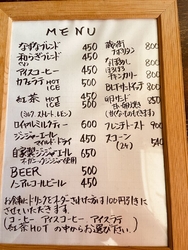 MENU
なずなブレンド 450
和らぎブレンド 450
アイスコーヒー 450
カフェラテ HOT 500
ICE 500
紅茶 HOT 450
ICE 500
(ミルク、ストレート、レモン)
ロイヤルミルクティー 600
ジンジャー 440
マイルド ドライ
自家製ジンジャーエール 650
BEER 500
ノンアルコールビール 450
ナポリタン 800
チキンカリー 800
BLTサンドイッチ 800
フレンチトースト 900
スコーン 540
お食事にドリンクをオーダーされた方は100円引きに
させていただきます
(コーヒー アイスコーヒー アイスラテ
紅茶HOT の中からお選び下さい)